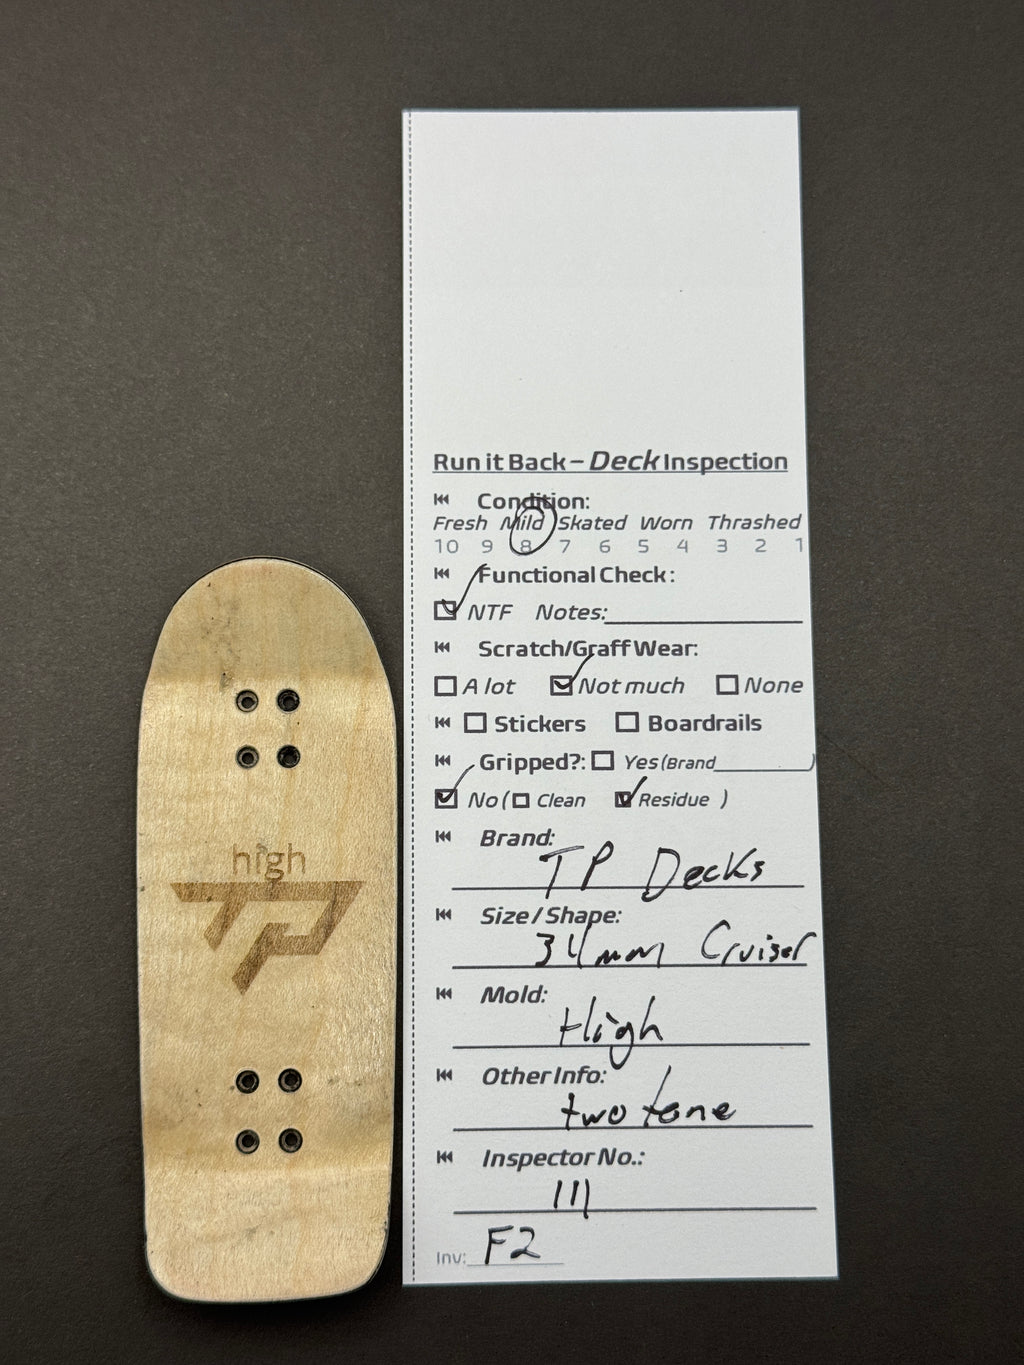 Run it Back – Deck Inspection
Condition:
Fresh Mild Skated Worn Thrashed
10 9 8 7 6 5 4 3 2 1
Functional Check:
NTF Notes:
Scratch/Graff Wear:
A lot Not much None
Stickers Boardrails
Gripped?: Yes (Brand )
No ( Clean Residue )
Brand:
TP Decks
Size / Shape:
34mm Cruiser
Mold:
High
Other Info:
two tone
Inspector No.:
111
Inv: F2
high
TP